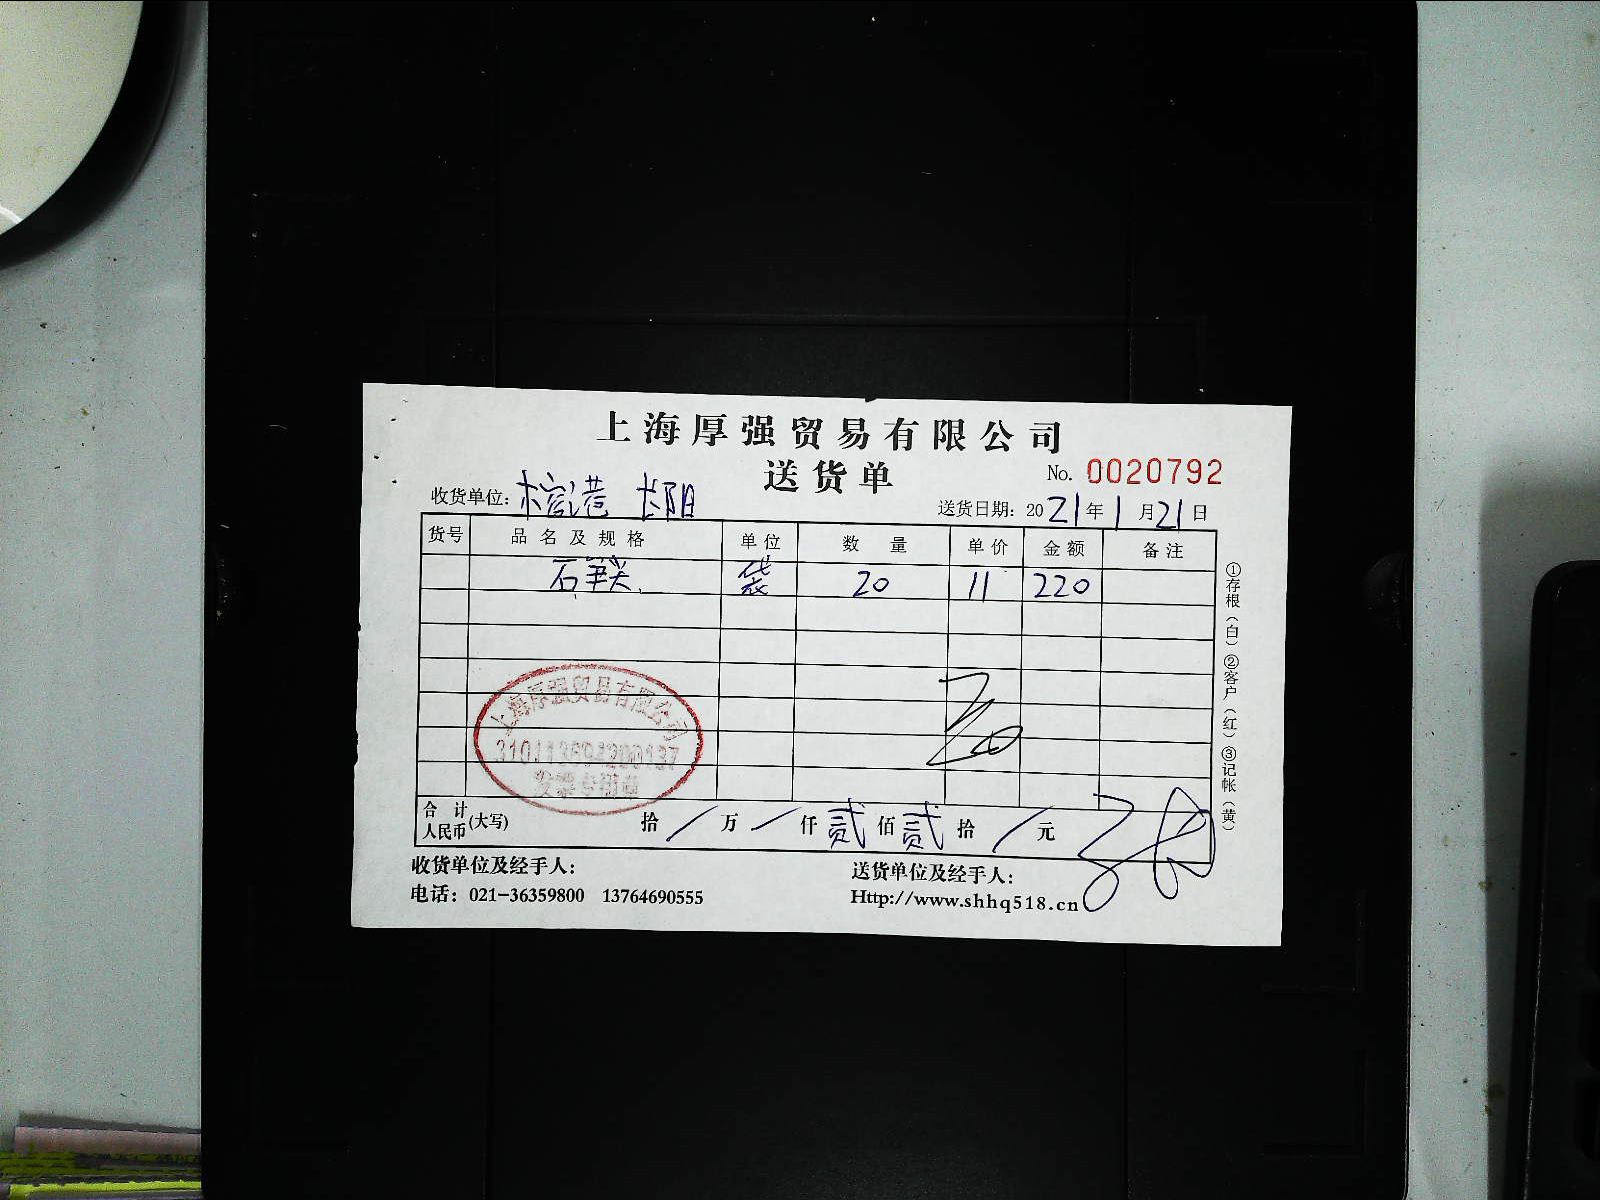 上海厚强贸易有限公司
送货单
No. 0020792
收货单位: 长阳
送货日期: 2021年1月21日
货号 品名及规格 单位 数量 单价 金额 备注
袋 20 11 220
上海厚强贸易有限公司
发票专用章
合计人民币(大写) 拾 / 万 / 仟 贰 佰 贰 拾 / 元
收货单位及经手人:
送货单位及经手人:
电话: 021-36359800 13764690555
Http://www.shhq518.cn
①存根(白)②客户(红)③记帐(黄)